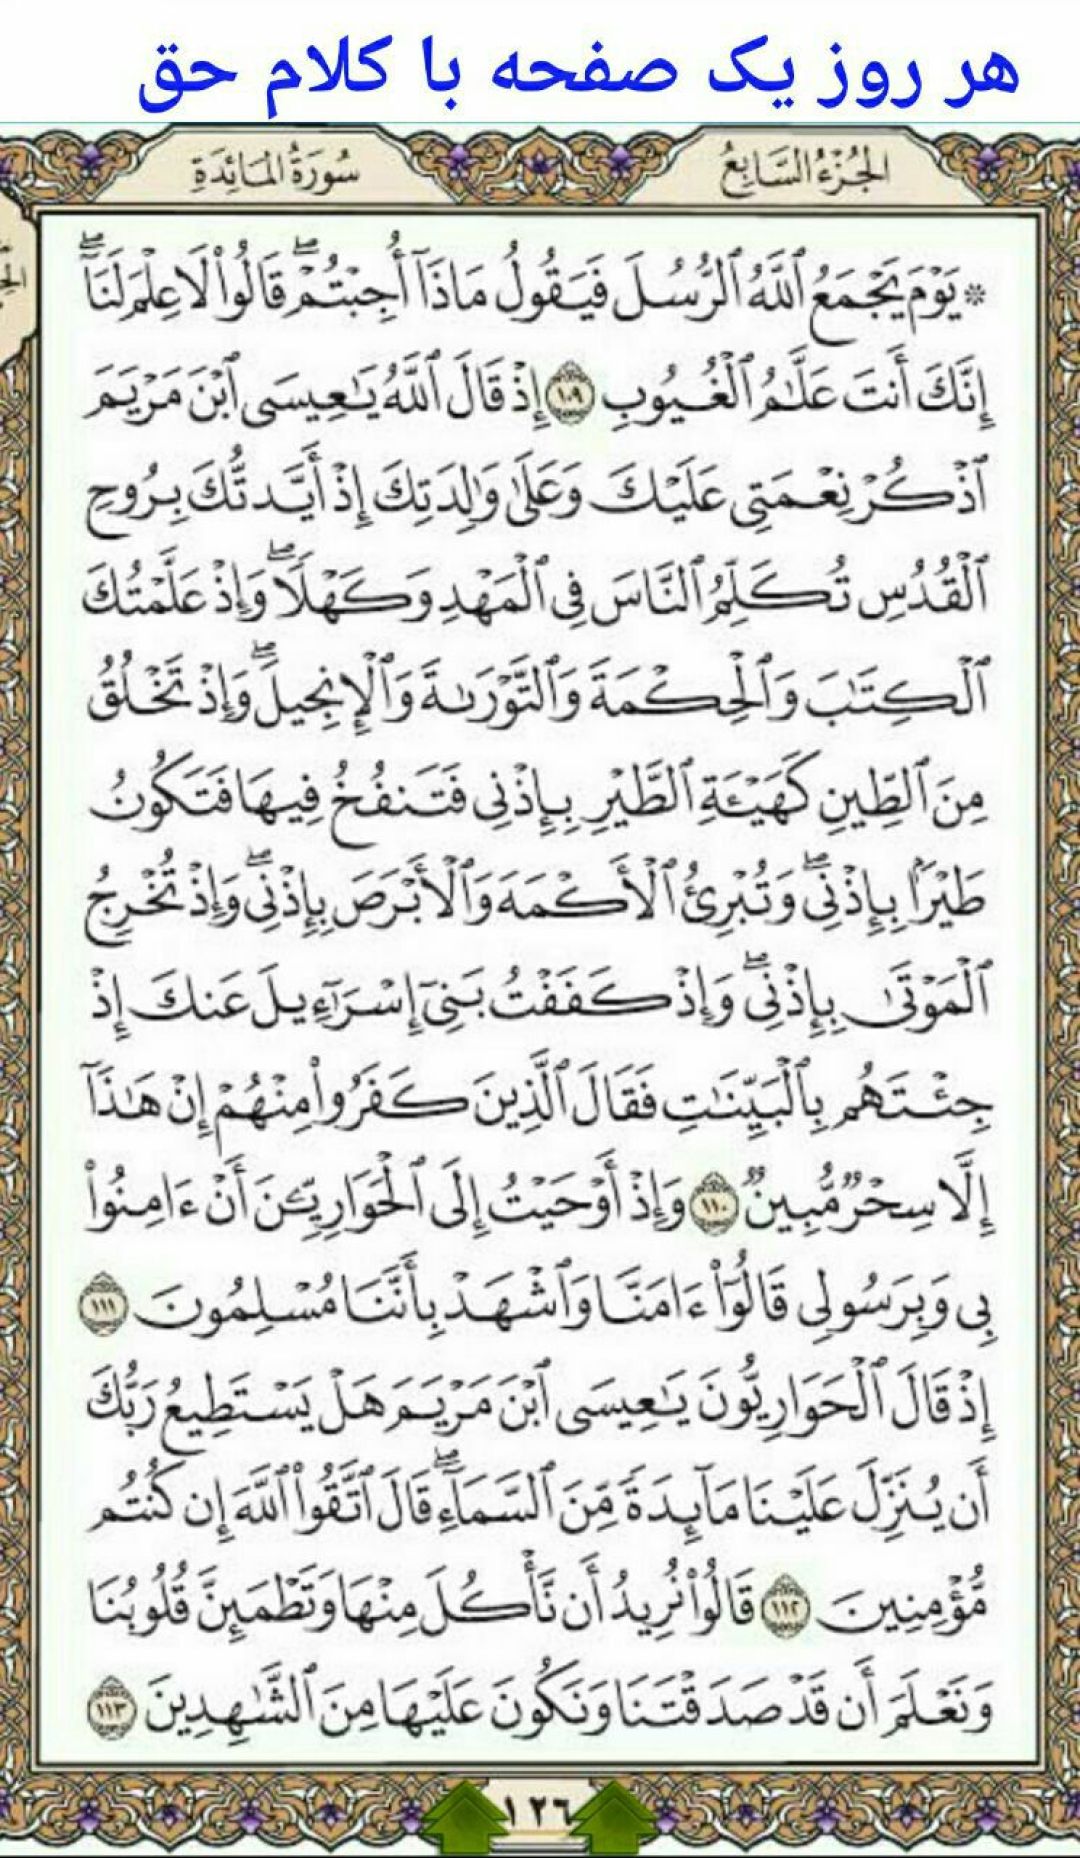 هر روز یک صفحه با کلام حق
الجُزْءُ السَّابِعُ
سُورَةُ المَائِدَةِ
۞ يَوْمَ يَجْمَعُ ٱللَّهُ ٱلرُّسُلَ فَيَقُولُ مَاذَآ أُجِبْتُمْۖ قَالُوا۟ لَا عِلْمَ لَنَآۖ
إِنَّكَ أَنتَ عَلَّٰمُ ٱلْغُيُوبِ ١٠٩ إِذْ قَالَ ٱللَّهُ يَٰعِيسَى ٱبْنَ مَرْيَمَ
ٱذْكُرْ نِعْمَتِى عَلَيْكَ وَعَلَىٰ وَٰلِدَتِكَ إِذْ أَيَّدتُّكَ بِرُوحِ
ٱلْقُدُسِ تُكَلِّمُ ٱلنَّاسَ فِى ٱلْمَهْدِ وَكَهْلًاۖ وَإِذْ عَلَّمْتُكَ
ٱلْكِتَٰبَ وَٱلْحِكْمَةَ وَٱلتَّوْرَىٰةَ وَٱلْإِنجِيلَۖ وَإِذْ تَخْلُقُ
مِنَ ٱلطِّينِ كَهَيْـَٔةِ ٱلطَّيْرِ بِإِذْنِى فَتَنفُخُ فِيهَا فَتَكُونُ
طَيْرًۢا بِإِذْنِىۖ وَتُبْرِئُ ٱلْأَكْمَهَ وَٱلْأَبْرَصَ بِإِذْنِىۖ وَإِذْ تُخْرِجُ
ٱلْمَوْتَىٰ بِإِذْنِىۖ وَإِذْ كَفَفْتُ بَنِىٓ إِسْرَٰٓءِيلَ عَنكَ إِذْ
جِئْتَهُم بِٱلْبَيِّنَٰتِ فَقَالَ ٱلَّذِينَ كَفَرُوا۟ مِنْهُمْ إِنْ هَٰذَآ
إِلَّا سِحْرٌ مُّبِينٌ ١١٠ وَإِذْ أَوْحَيْتُ إِلَى ٱلْحَوَارِيِّـۧنَ أَنْ ءَامِنُوا۟
بِى وَبِرَسُولِى قَالُوٓا۟ ءَامَنَّا وَٱشْهَدْ بِأَنَّنَا مُسْلِمُونَ ١١١
إِذْ قَالَ ٱلْحَوَارِيُّونَ يَٰعِيسَى ٱبْنَ مَرْيَمَ هَلْ يَسْتَطِيعُ رَبُّكَ
أَن يُنَزِّلَ عَلَيْنَا مَآئِدَةً مِّنَ ٱلسَّمَآءِۖ قَالَ ٱتَّقُوا۟ ٱللَّهَ إِن كُنتُم
مُّؤْمِنِينَ ١١٢ قَالُوا۟ نُرِيدُ أَن نَّأْكُلَ مِنْهَا وَتَطْمَئِنَّ قُلُوبُنَا
وَنَعْلَمَ أَن قَدْ صَدَقْتَنَا وَنَكُونَ عَلَيْهَا مِنَ ٱلشَّٰهِدِينَ ١١٣
١٢٦